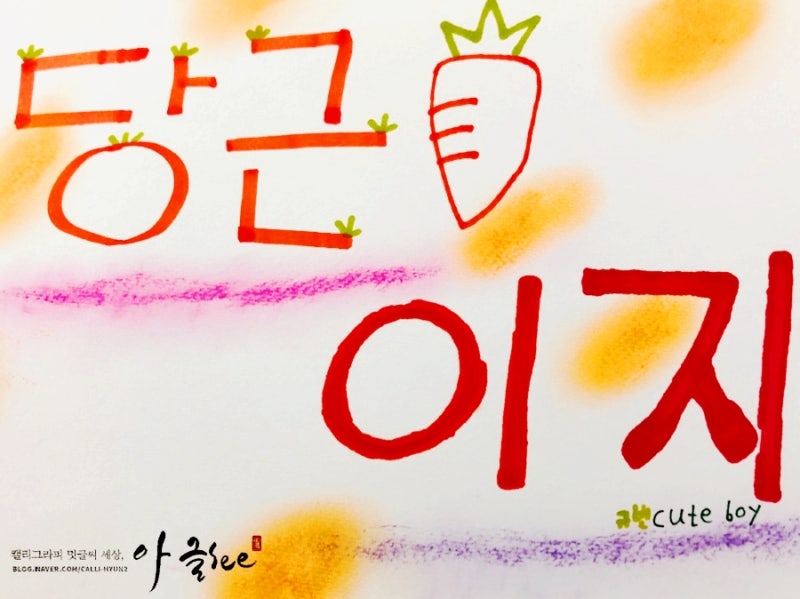 당근
이지
규빈 cute boy
캘리그라피 멋글씨 세상,
아글see
BLOG.NAVER.COM/CALLI-HYUN2